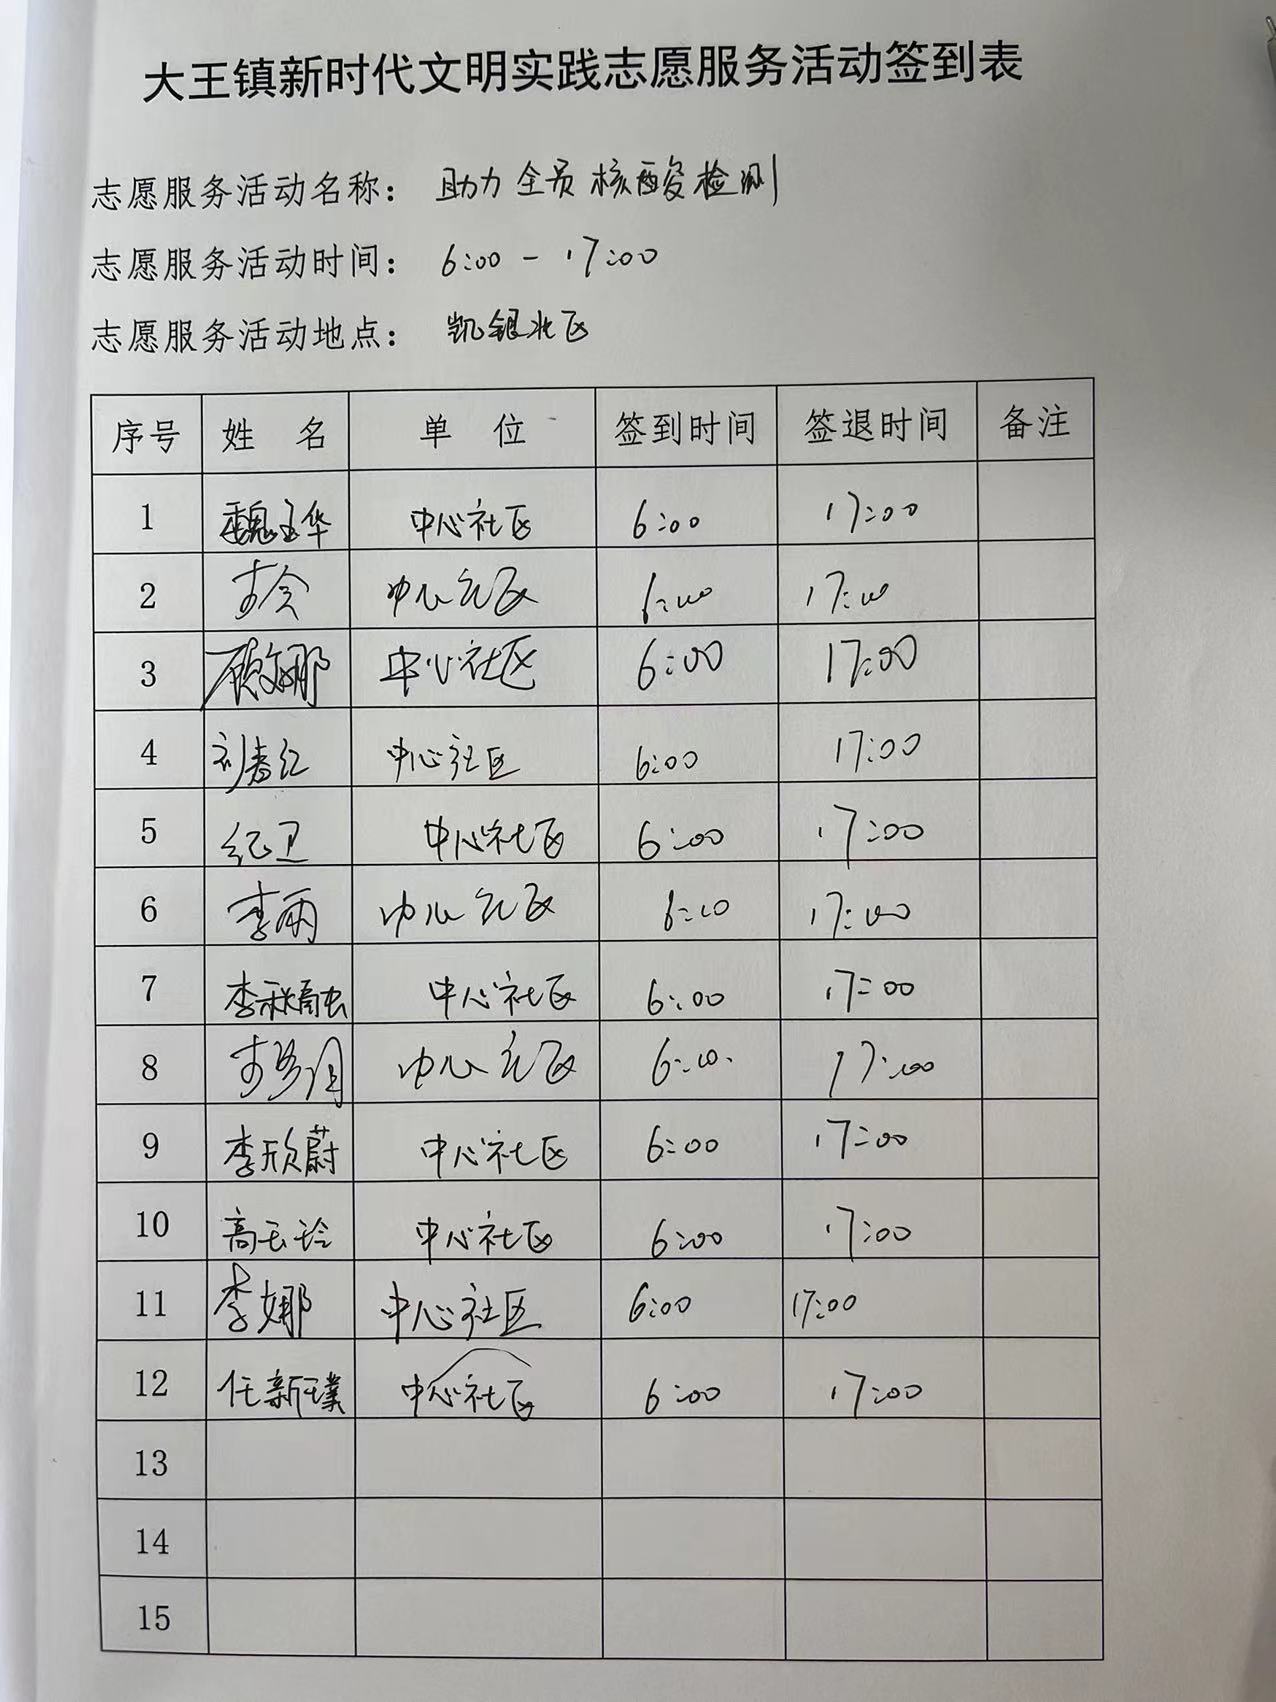 大王镇新时代文明实践志愿服务活动签到表
志愿服务活动名称： 助力全员核酸检测
志愿服务活动时间： 6:00 - 17:00
志愿服务活动地点： 凯银北区
序号 姓 名 单 位 签到时间 签退时间 备注
1 魏玉华 中心社区 6:00 17:00
2 中心社区 6:00 17:00
3 顾文娜 中心社区 6:00 17:00
4 刘春红 中心社区 6:00 17:00
5 纪卫 中心社区 6:00 17:00
6 李雨 中心社区 6:00 17:00
7 李秋融 中心社区 6:00 17:00
8 中心社区 6:00 17:00
9 李欣蔚 中心社区 6:00 17:00
10 高玉玲 中心社区 6:00 17:00
11 李娜 中心社区 6:00 17:00
12 任新璞 中心社区 6:00 17:00
13
14
15